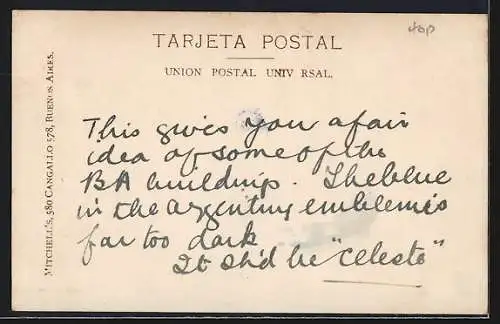 40p
TARJETA POSTAL
UNION POSTAL UNIV RSAL.
MITCHELL'S, 580 CANGALLO 578, BUENOS AIRES.
This gives you a fair
idea of some of the
BA buildings. The blue
in the argentiny emblem is
far too dark
It sh'd be "celeste"